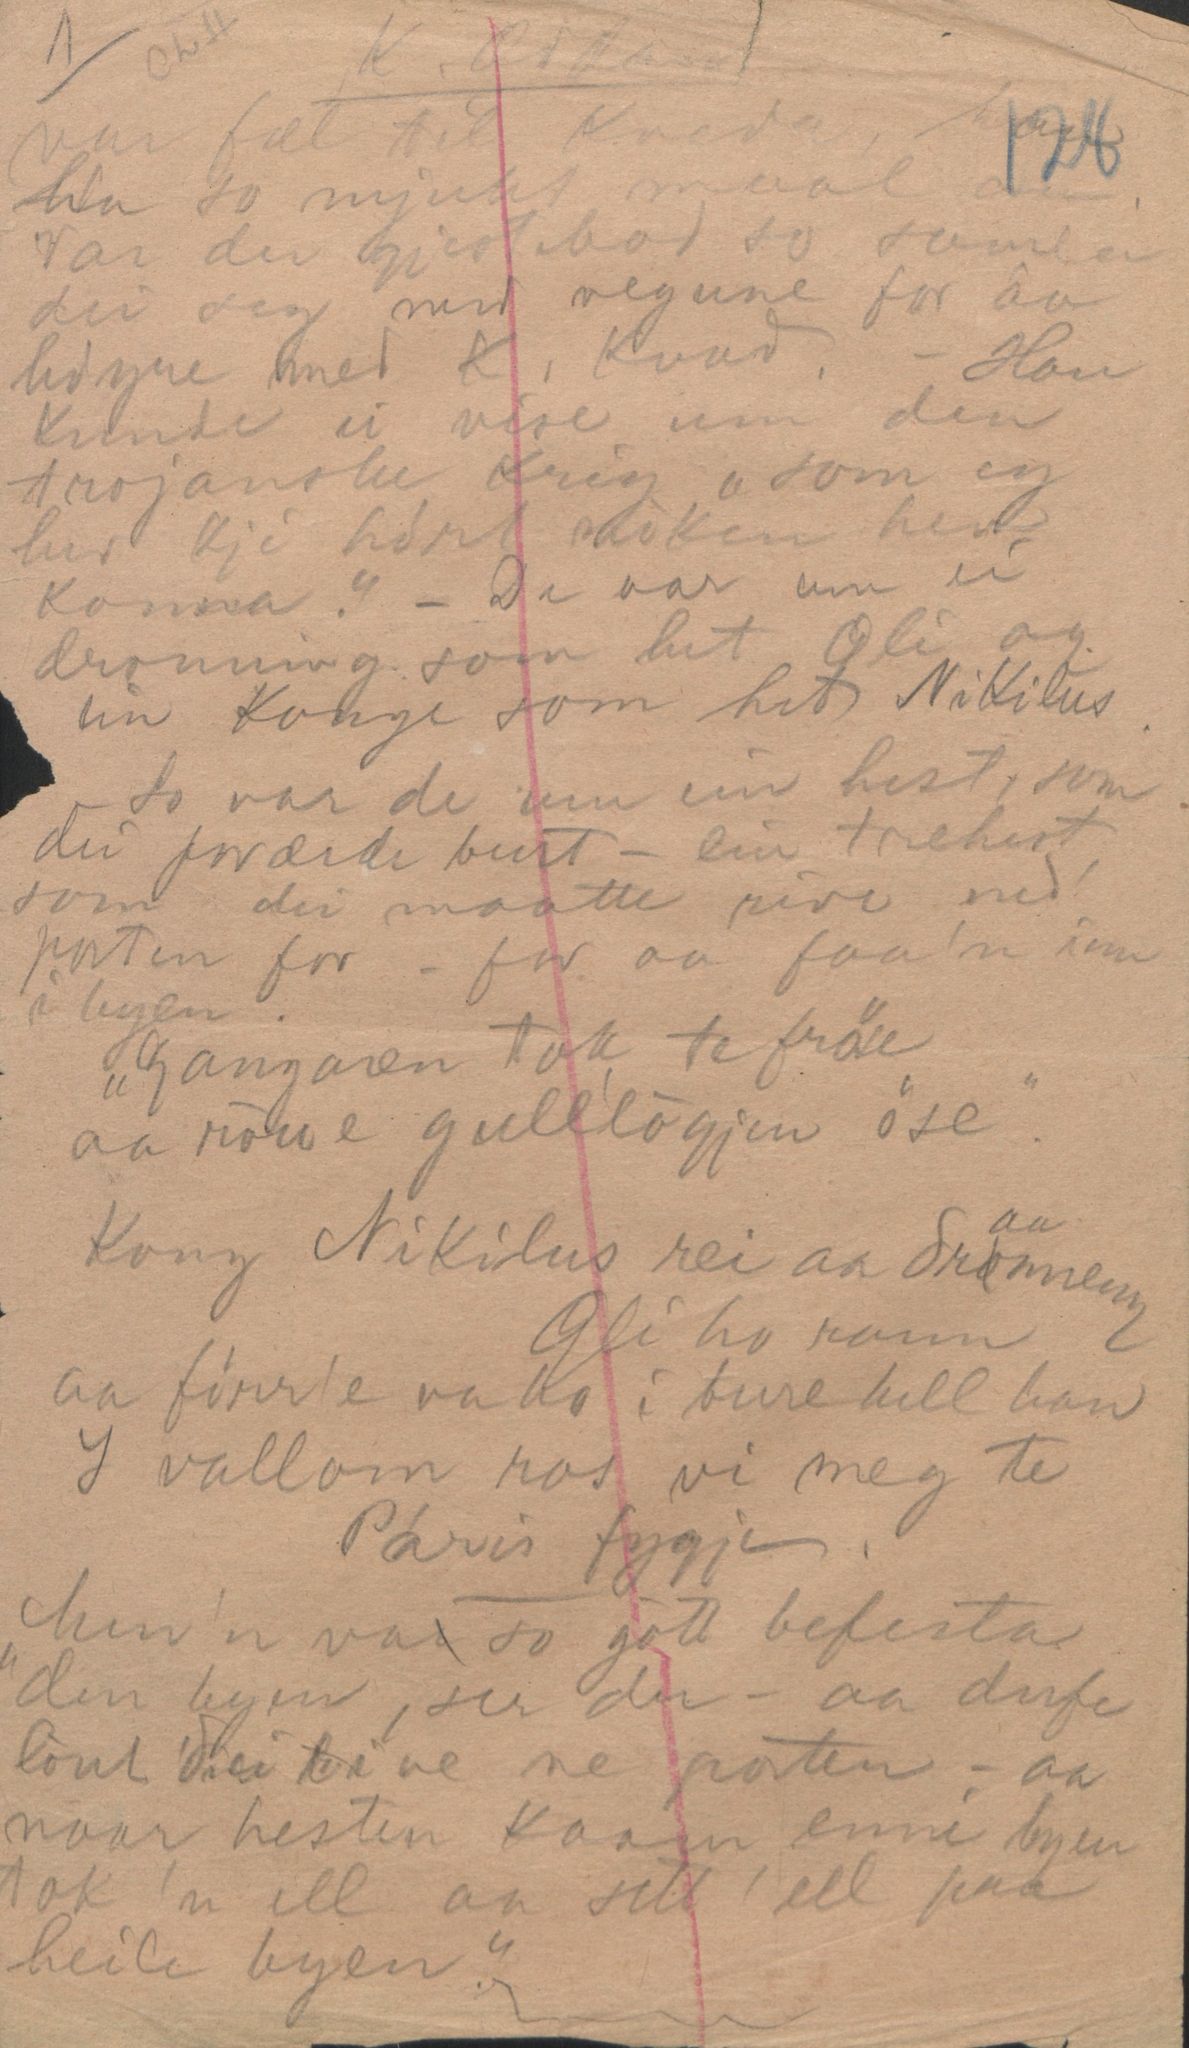 1/
128
var fæl til Kveda,
ha so mjukt maal
Var der gjestebod so samla
dei seg ned vegune for aa
høyre med K. kvad. - Hou
kunde ei vise um den
trojanske Krig, "som eg
har kji hørt maken her
konna." - De var um ei
dronning som het Oli og
ein Konge som het Nikilus.
So var de um ein hest, som
dei forærde burt - ein trehest,
som dei maatte rive ned
porten for - for aa faa'n inn
i byen.
"Gangaren tok te fröse
aa röuve gulltögjen öse".
Kong Nikilus rei aa Dronneng
aa
Oli ho rann
aa förr'e va ho i bure hell han
I vallom ros vi meg te
Páris fygje.
"Men'n var so gött befesta
den byen, ser du - aa
dei rive ne porten - aa
naar hesten kaam enni byen
tok 'n ell aa sett' ell paa
heile byen."